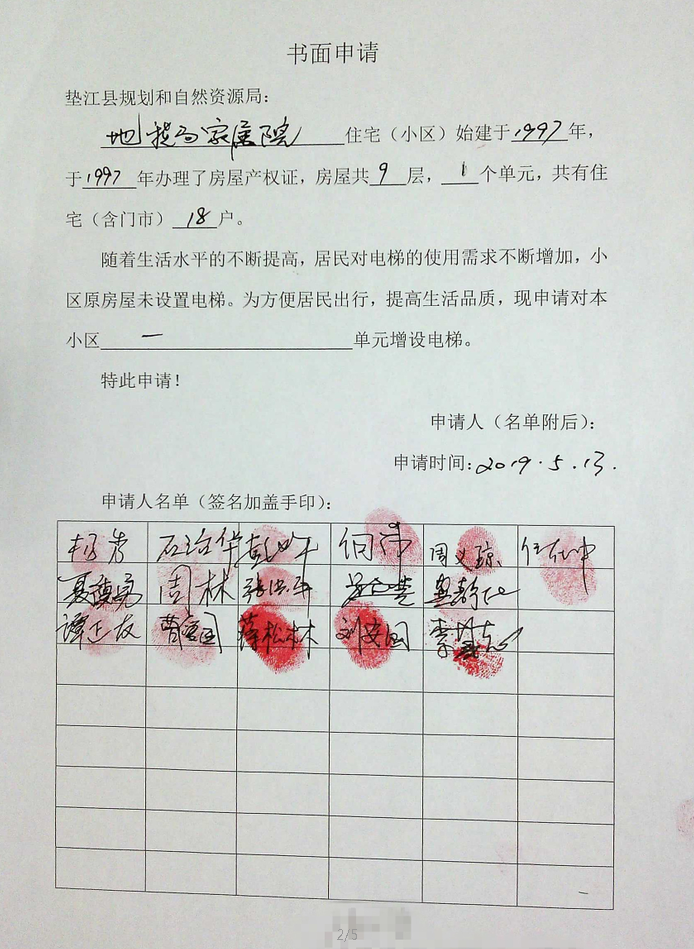 书面申请
垫江县规划和自然资源局：
家属院 住宅（小区）始建于1997年，
于1997年办理了房屋产权证，房屋共9层，1个单元，共有住
宅（含门市）18户。
随着生活水平的不断提高，居民对电梯的使用需求不断增加，小
区原房屋未设置电梯。为方便居民出行，提高生活品质，现申请对本
小区一单元增设电梯。
特此申请！
申请人（名单附后）：
申请时间：2019.5.13.
申请人名单（签名加盖手印）：
石治华 周义琼
周林
谭正友 曹 蒋松林 刘安国
2/5